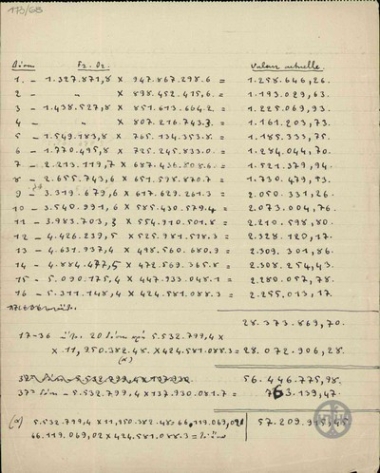 173/68
δόσις Fr. Or. Valeur actuelle
1. – 1.327.871,8 × 947.867.298.6 = 1.258.646,26.
2 – " × 898.452.415.6 = 1.193.029,63.
3 – 1.438.527,8 × 851.613.664.2 = 1.225.069,93.
4 – " × 807.216.743.7 = 1.161.203,73.
5 – 1.549.183,8 × 765.134.353.8 = 1.185.333,75.
6 – 1.770.495,8 × 725.245.833.0 = 1.284.044,70.
7 – 2.213.119,7 × 687.436.808.6 = 1.521.379,94.
8 – 2.655.743,6 × 651.598.870.7 = 1.730.479,93.
9 – 3.319.679,6 × 617.629.261.3 = 2.050.331,26
10 – 3.540.991,6 × 585.430.579.4 = 2.073.004,76
11 – 3.983.703,3 × 554.910.501.8 = 2.210.598,80
12 – 4.426.239,5 × 525.981.518.3 = 2.328.120,17
13 – 4.631.937,4 × 498.560.680.9 = 2.309.301,86
14 – 4.884.477,5 × 472.569.365.8 = 2.308.254,43
15 – 5.090.175,4 × 447.933.048.1 = 2.280.057,78
16 – 5.311.148,4 × 424.581.088.3 = 2.255.013,17.
28.373.869,70.
17-36 20 5.532.799,4
× 11,950.382.48 × 424.581.088.3 = 28.072.906,28.
(α)
56.446.775,98
37η – 5.532.799,4 × 137.930.081.7 = 763.139,47.
57.209.915,45
(α) 5.532.799,4 × 11,950.382.48 = 66.119.069,02
66.119.069,02 × 424.581.088.3 =